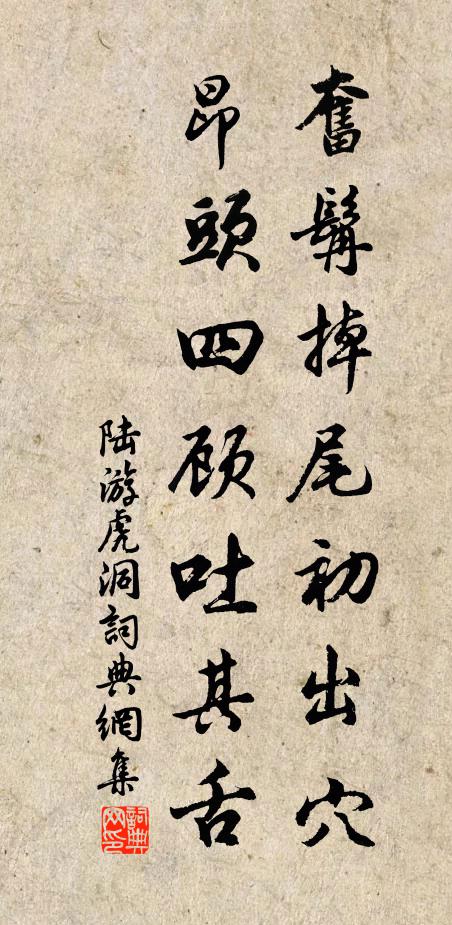 奮髯掉尾初出穴
昂頭四顧吐其舌
陆游虎洞詞典網集
詞典網印